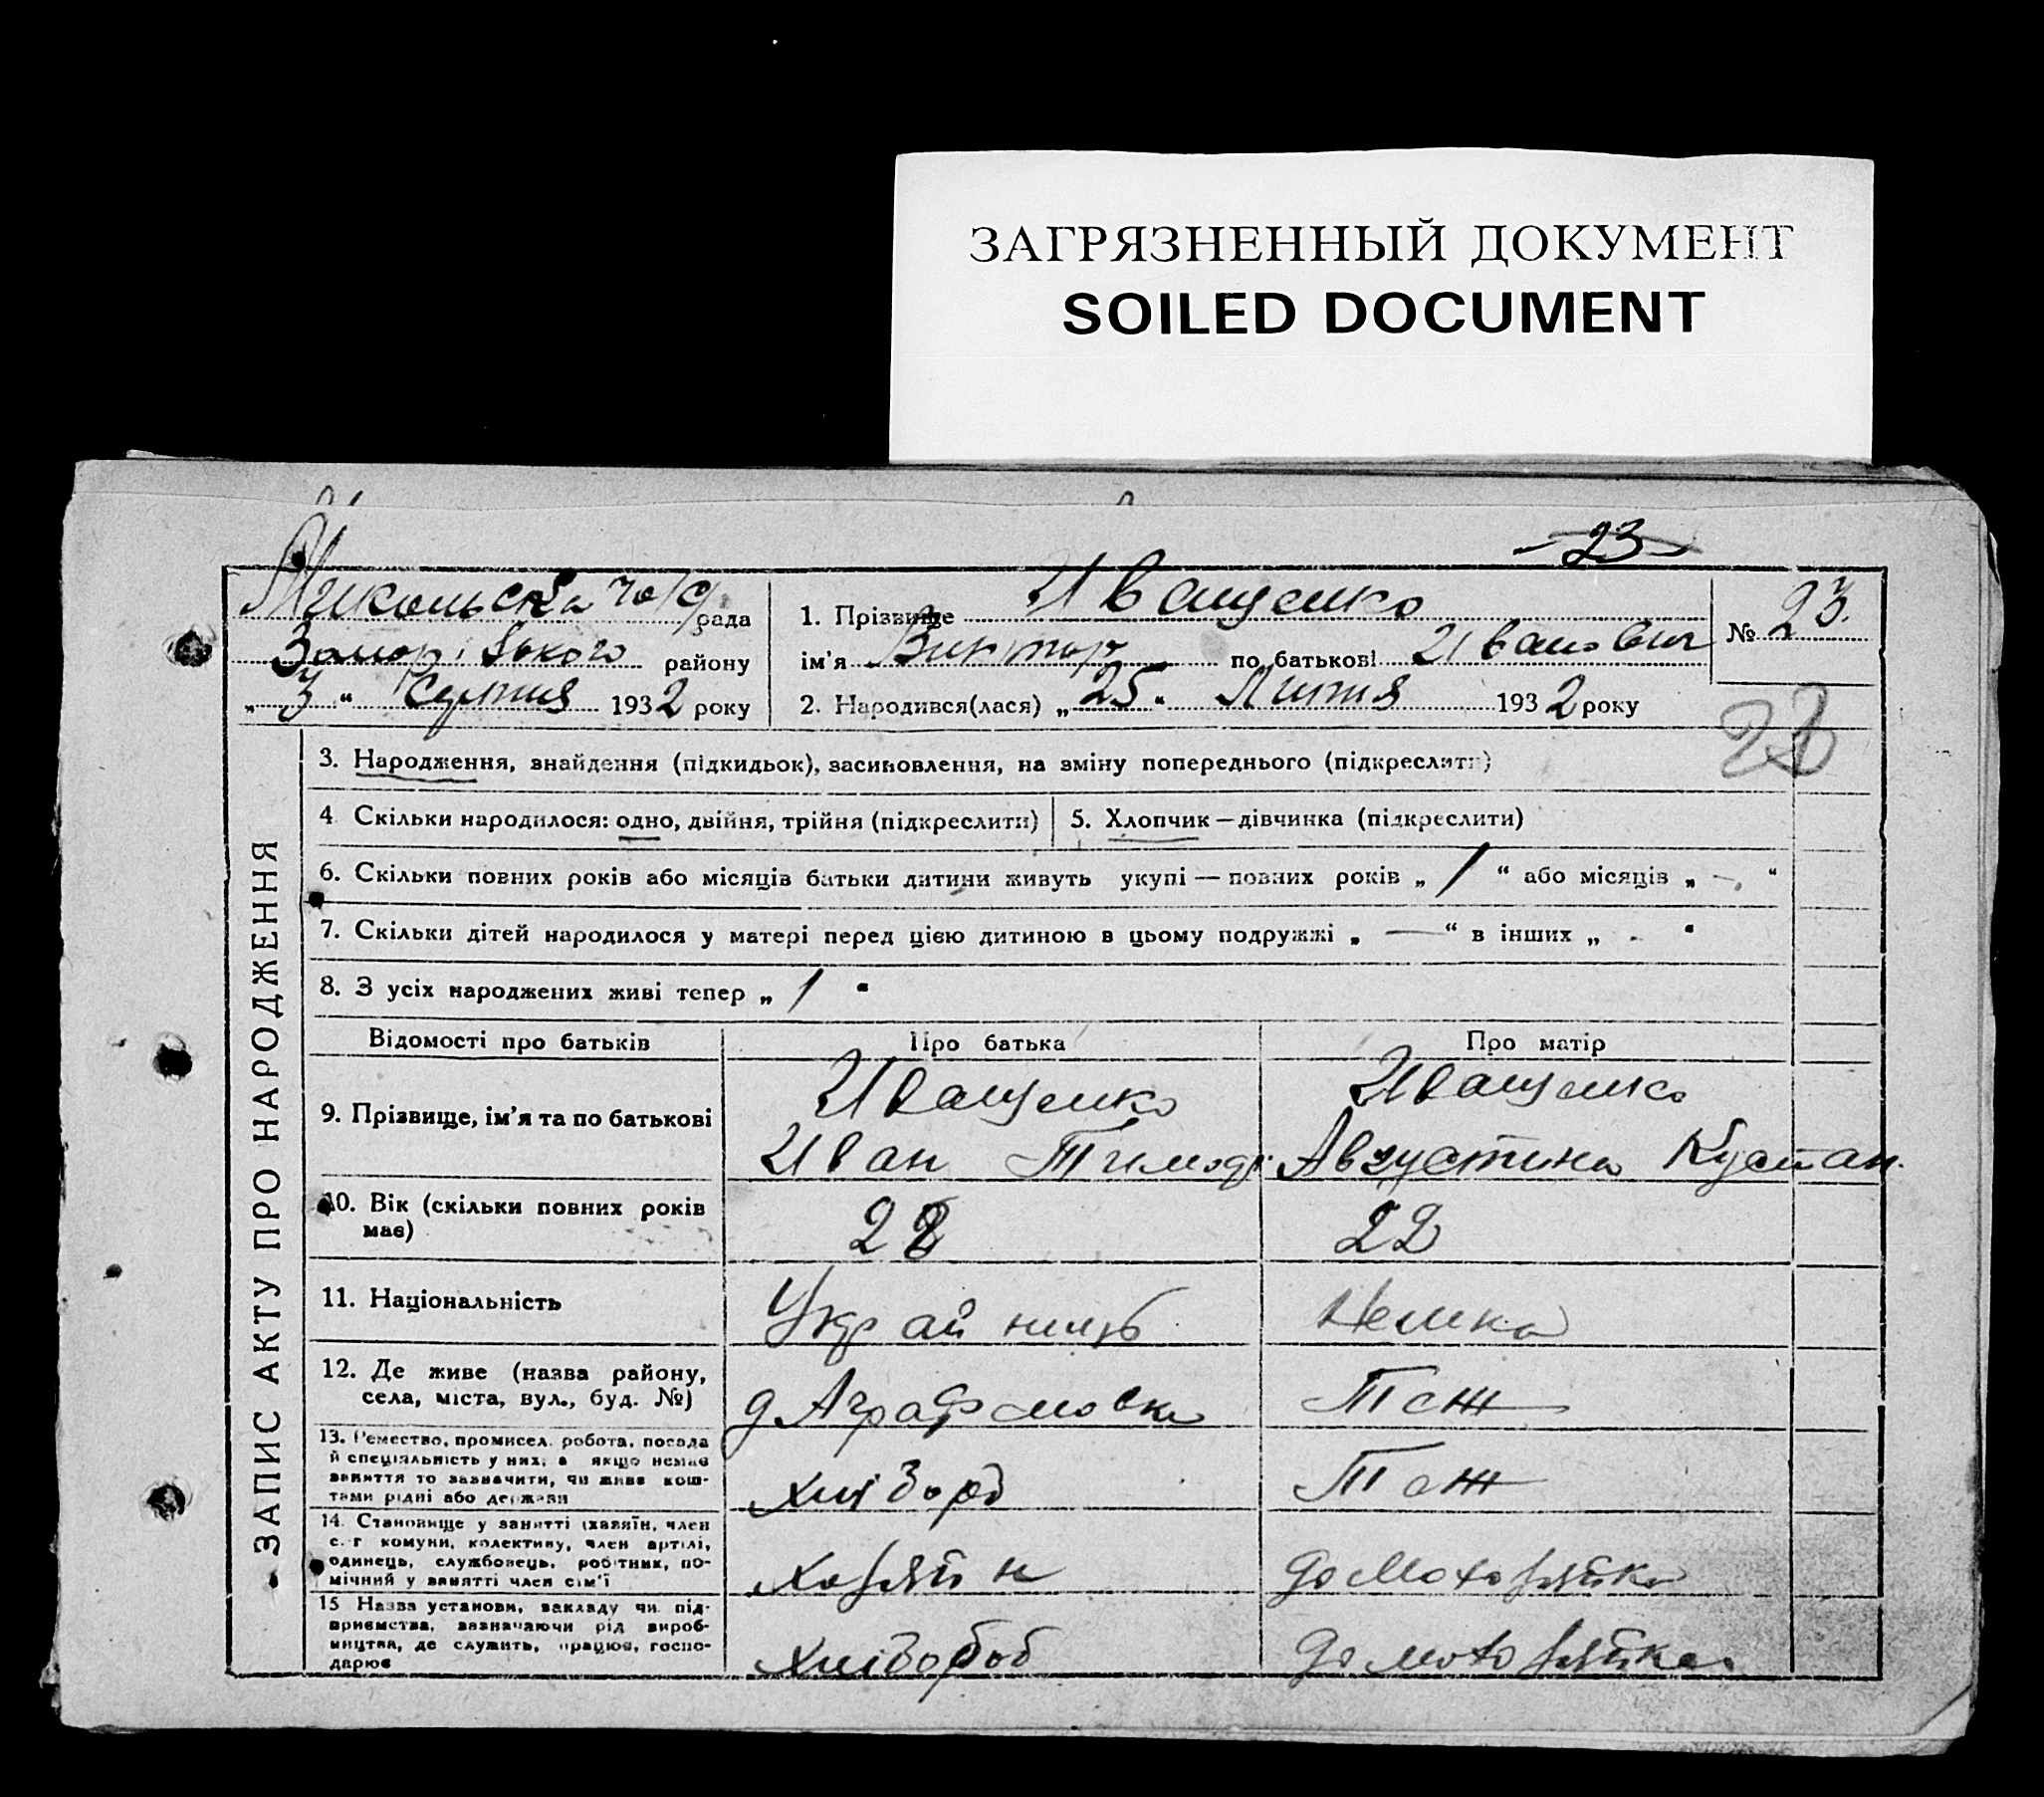 ЗАГРЯЗНЕННЫЙ ДОКУМЕНТ
SOILED DOCUMENT
- 23 -
Микольська рада
району
„ 3 “ Серпня 1932 року
1. Прізвище Иващенко
ім'я Виктор по батькові Иванович
№ 23.
2. Народився(лася) „ 25 “ Липня 1932 року
3. Народження, знайдення (підкидьок), засиновлення, на зміну попереднього (підкреслити)
4 Скільки народилося: одно, двійня, трійня (підкреслити)
5. Хлопчик — дівчинка (підкреслити)
6. Скільки повних років або місяців батьки дитини живуть укупі — повних років „ 1 “ або місяців „ — “
7. Скільки дітей народилося у матері перед цією дитиною в цьому подружжі „ — “ в інших „ - “
8. З усіх народжених живі тепер „ 1 “
ЗАПИС АКТУ ПРО НАРОДЖЕННЯ
Відомості про батьків Про батька Про матір
9. Прізвище, ім'я та по батькові Иващенко Иващенко
Иван Тимоф. Августина Кустан.
10. Вік (скільки повних років має) 28 22
11. Національність Украйнець Немка
12. Де живе (назва району,
села, міста, вул., буд. №) д Аграфеновка Тож
13. Ремество, промисел, робота, посада
й спеціяльність у них, а якщо немає
заняття то зазначити, чи живе кош-
тами рідні або держави Хлібороб Тож
14. Становище у занятті (хазяїн, член
с.-г комуни, колективу, член артілі,
одинець, службовець, робітник, по-
мічний у занятті член сім'ї Хозяйн домохозяйка
15 Назва установи, закладу чи під-
приємства, зазначаючи рід вироб-
ництва, де служить, працює, госпо-
дарює Хлібороб домохозяйка